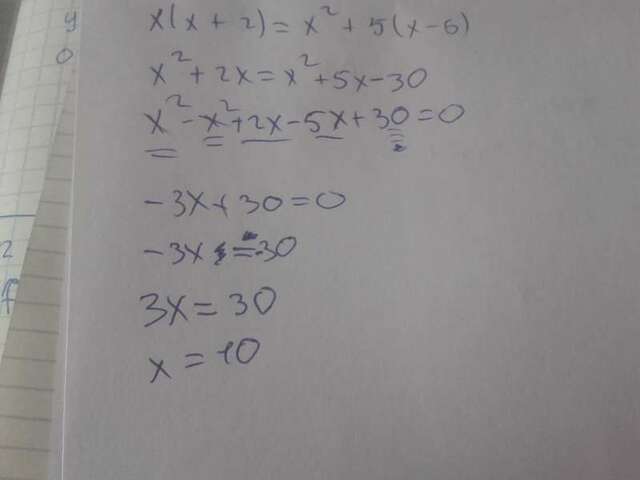 x(x + 2) = x² + 5(x - 6)
x² + 2x = x² + 5x - 30
x² - x² + 2x - 5x + 30 = 0
- 3x + 30 = 0
- 3x = -30
3x = 30
x = 10